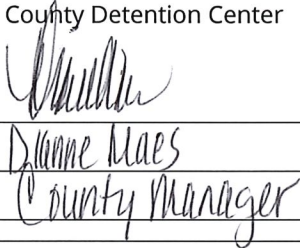 County Detention Center
Dianne Maes
County Manager